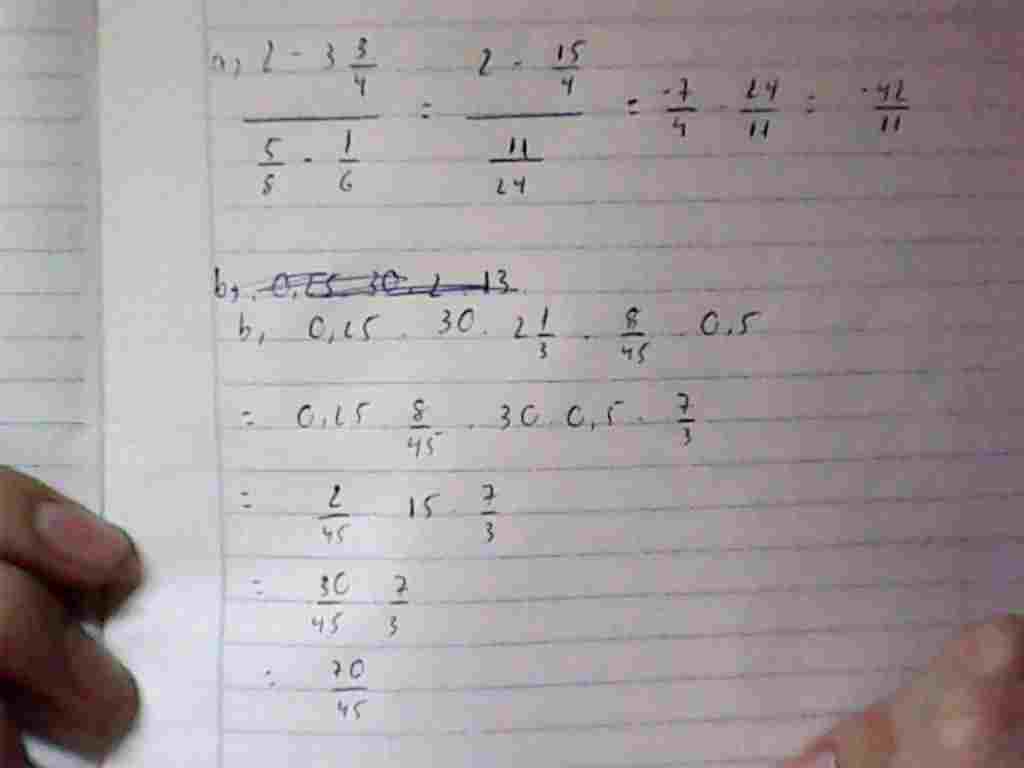 a, (2 - 3 3/4) / (5/8 - 1/6) = (2 - 15/4) / (11/24) = -7/4 . 24/11 = -42/11
b, 0,25 30. 2 13
b, 0,25 . 30 . 2 1/3 . 8/45 0,5
= 0,25 8/45 . 30 0,5 . 7/3
= 2/45 15 7/3
= 30/45 7/3
= 70/45